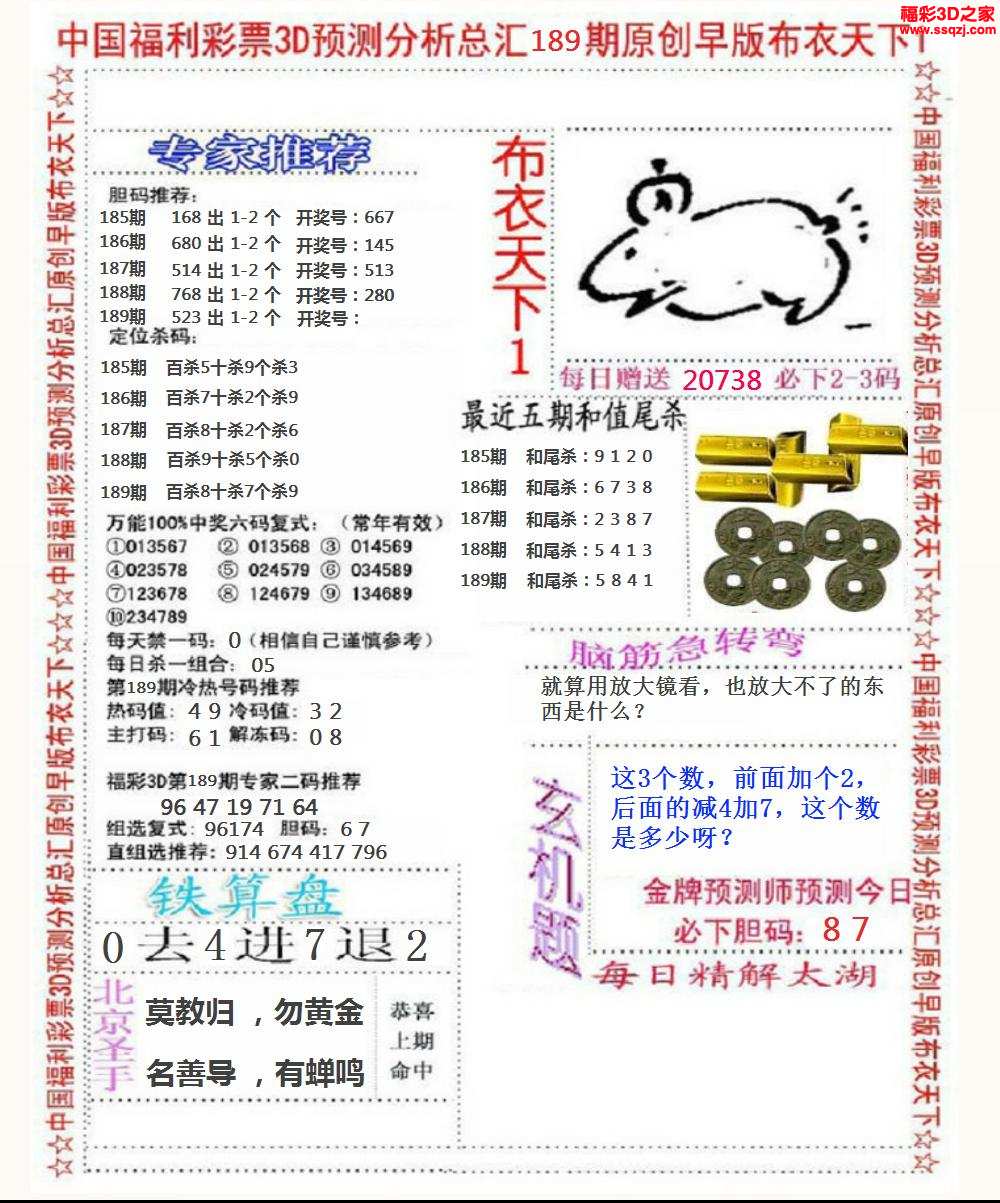 福彩3D之家
www.ssqzj.com
中国福利彩票3D预测分析总汇189期原创早版布衣天下1
☆☆中国福利彩票3D预测分析总汇原创早版布衣天下☆☆☆中国福利彩票3D预测分析总汇原创早版布衣天下☆☆
专家推荐
胆码推荐:
185期 168 出 1-2 个 开奖号：667
186期 680 出 1-2 个 开奖号：145
187期 514 出 1-2 个 开奖号：513
188期 768 出 1-2 个 开奖号：280
189期 523 出 1-2 个 开奖号：
定位杀码:
185期 百杀5十杀9个杀3
186期 百杀7十杀2个杀9
187期 百杀8十杀2个杀6
188期 百杀9十杀5个杀0
189期 百杀8十杀7个杀9
布衣天下1
每日赠送 20738 必下2-3码
最近五期和值尾杀
185期 和尾杀：9 1 2 0
186期 和尾杀：6 7 3 8
187期 和尾杀：2 3 8 7
188期 和尾杀：5 4 1 3
189期 和尾杀：5 8 4 1
万能100%中奖六码复式：（常年有效）
①013567 ② 013568 ③ 014569
④023578 ⑤ 024579 ⑥ 034589
⑦123678 ⑧ 124679 ⑨ 134689
⑩234789
每天禁一码：0（相信自己谨慎参考）
每日杀一组合：05
第189期冷热号码推荐
热码值：4 9 冷码值：3 2
主打码：6 1 解冻码：0 8
福彩3D第189期专家二码推荐
96 47 19 71 64
组选复式：96174 胆码：6 7
直组选推荐：914 674 417 796
脑筋急转弯
就算用放大镜看，也放大不了的东
西是什么？
玄机题
这3个数，前面加个2，
后面的减4加7，这个数
是多少呀？
金牌预测师预测今日
必下胆码：8 7
每日精解太湖
铁算盘
0去4进7退2
北京圣手
莫教归 ，勿黄金
名善导 ，有蝉鸣
恭喜
上期
命中
☆☆中国福利彩票3D预测分析总汇原创早版布衣天下☆☆☆中国福利彩票3D预测分析总汇原创早版布衣天下☆☆